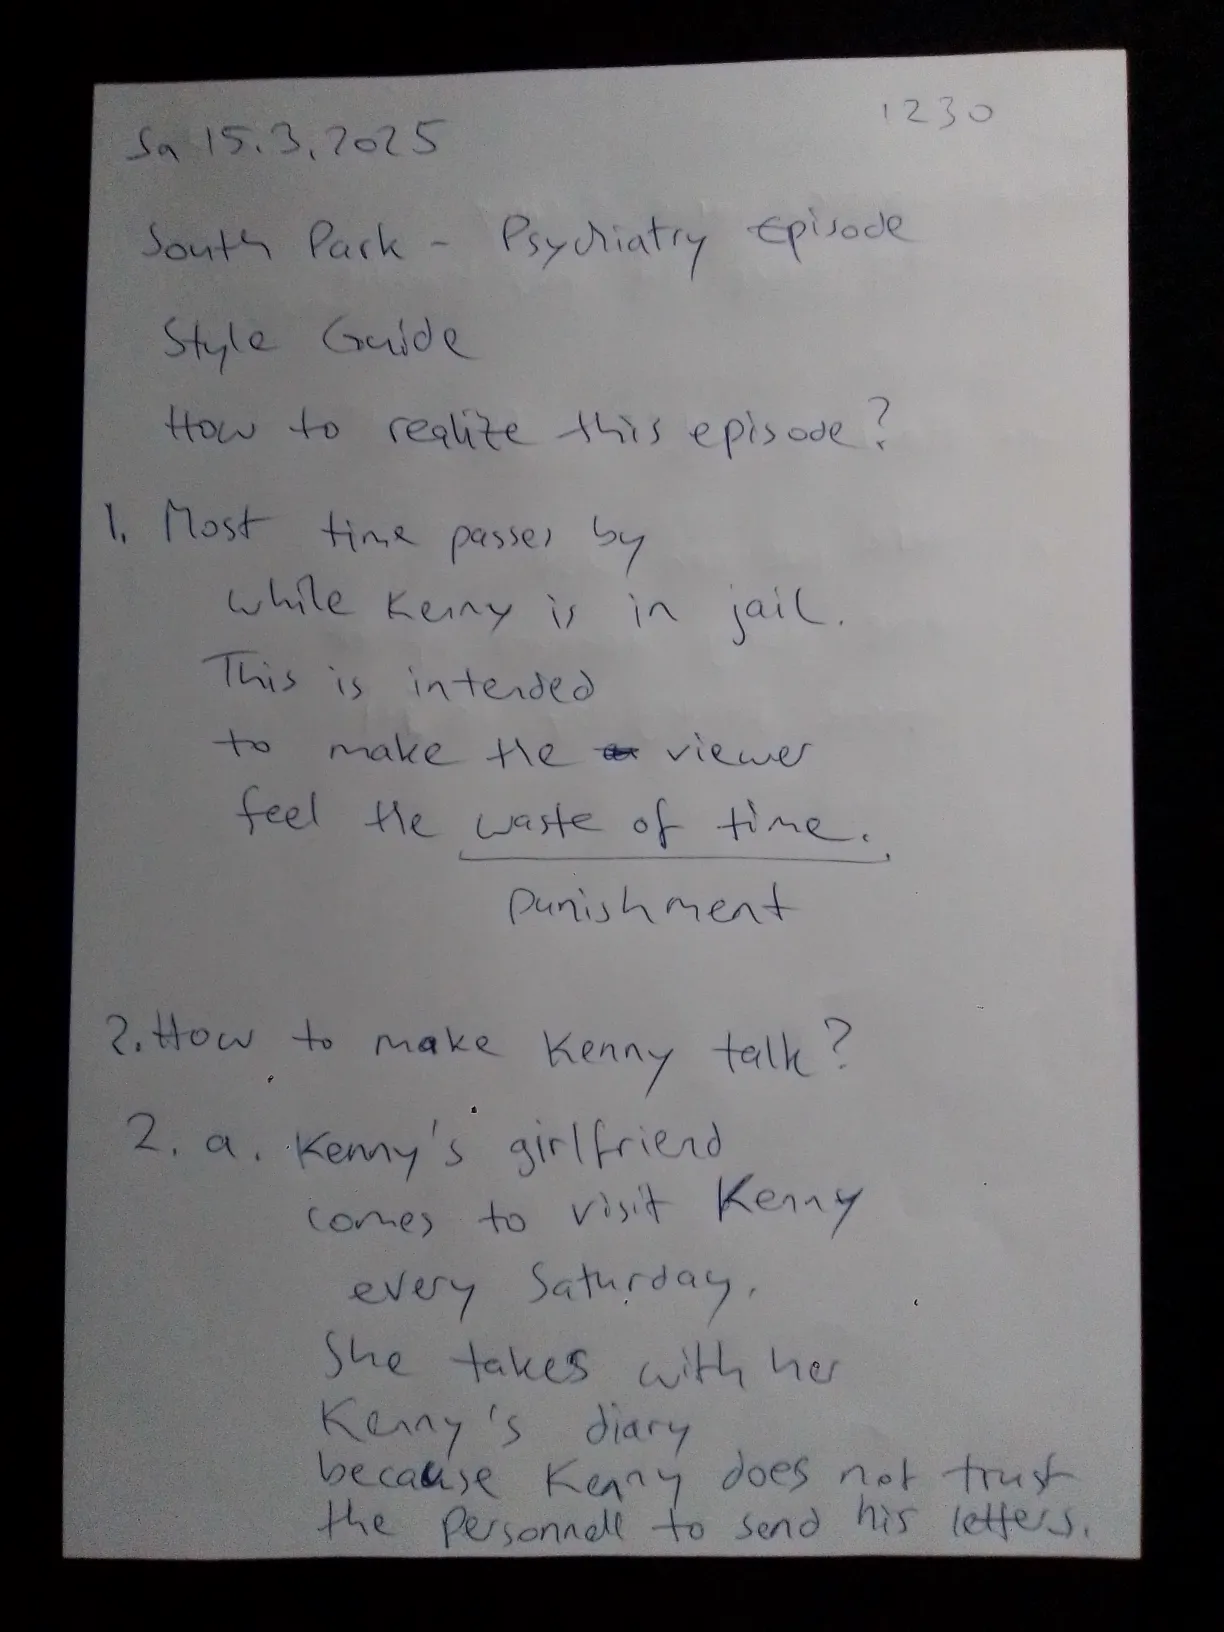 Sa 15.3.2025 1230
South Park - Psychiatry Episode
Style Guide
How to realize this episode?
1. Most time passes by
while Kenny is in jail.
This is intended
to make the viewer
feel the waste of time.
Punishment
2. How to make Kenny talk?
2. a. Kenny's girlfriend
comes to visit Kenny
every Saturday.
She takes with her
Kenny's diary
because Kenny does not trust
the Personnell to send his letters.